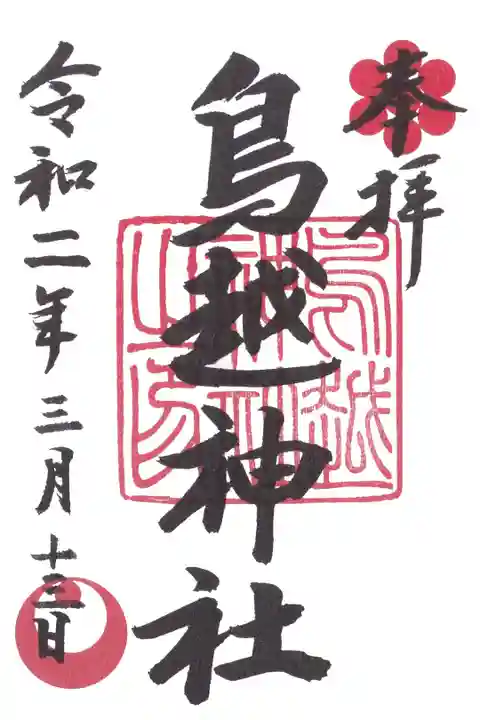 奉拝
鳥越神社
鳥越
神社
之印
令和二年三月十三日